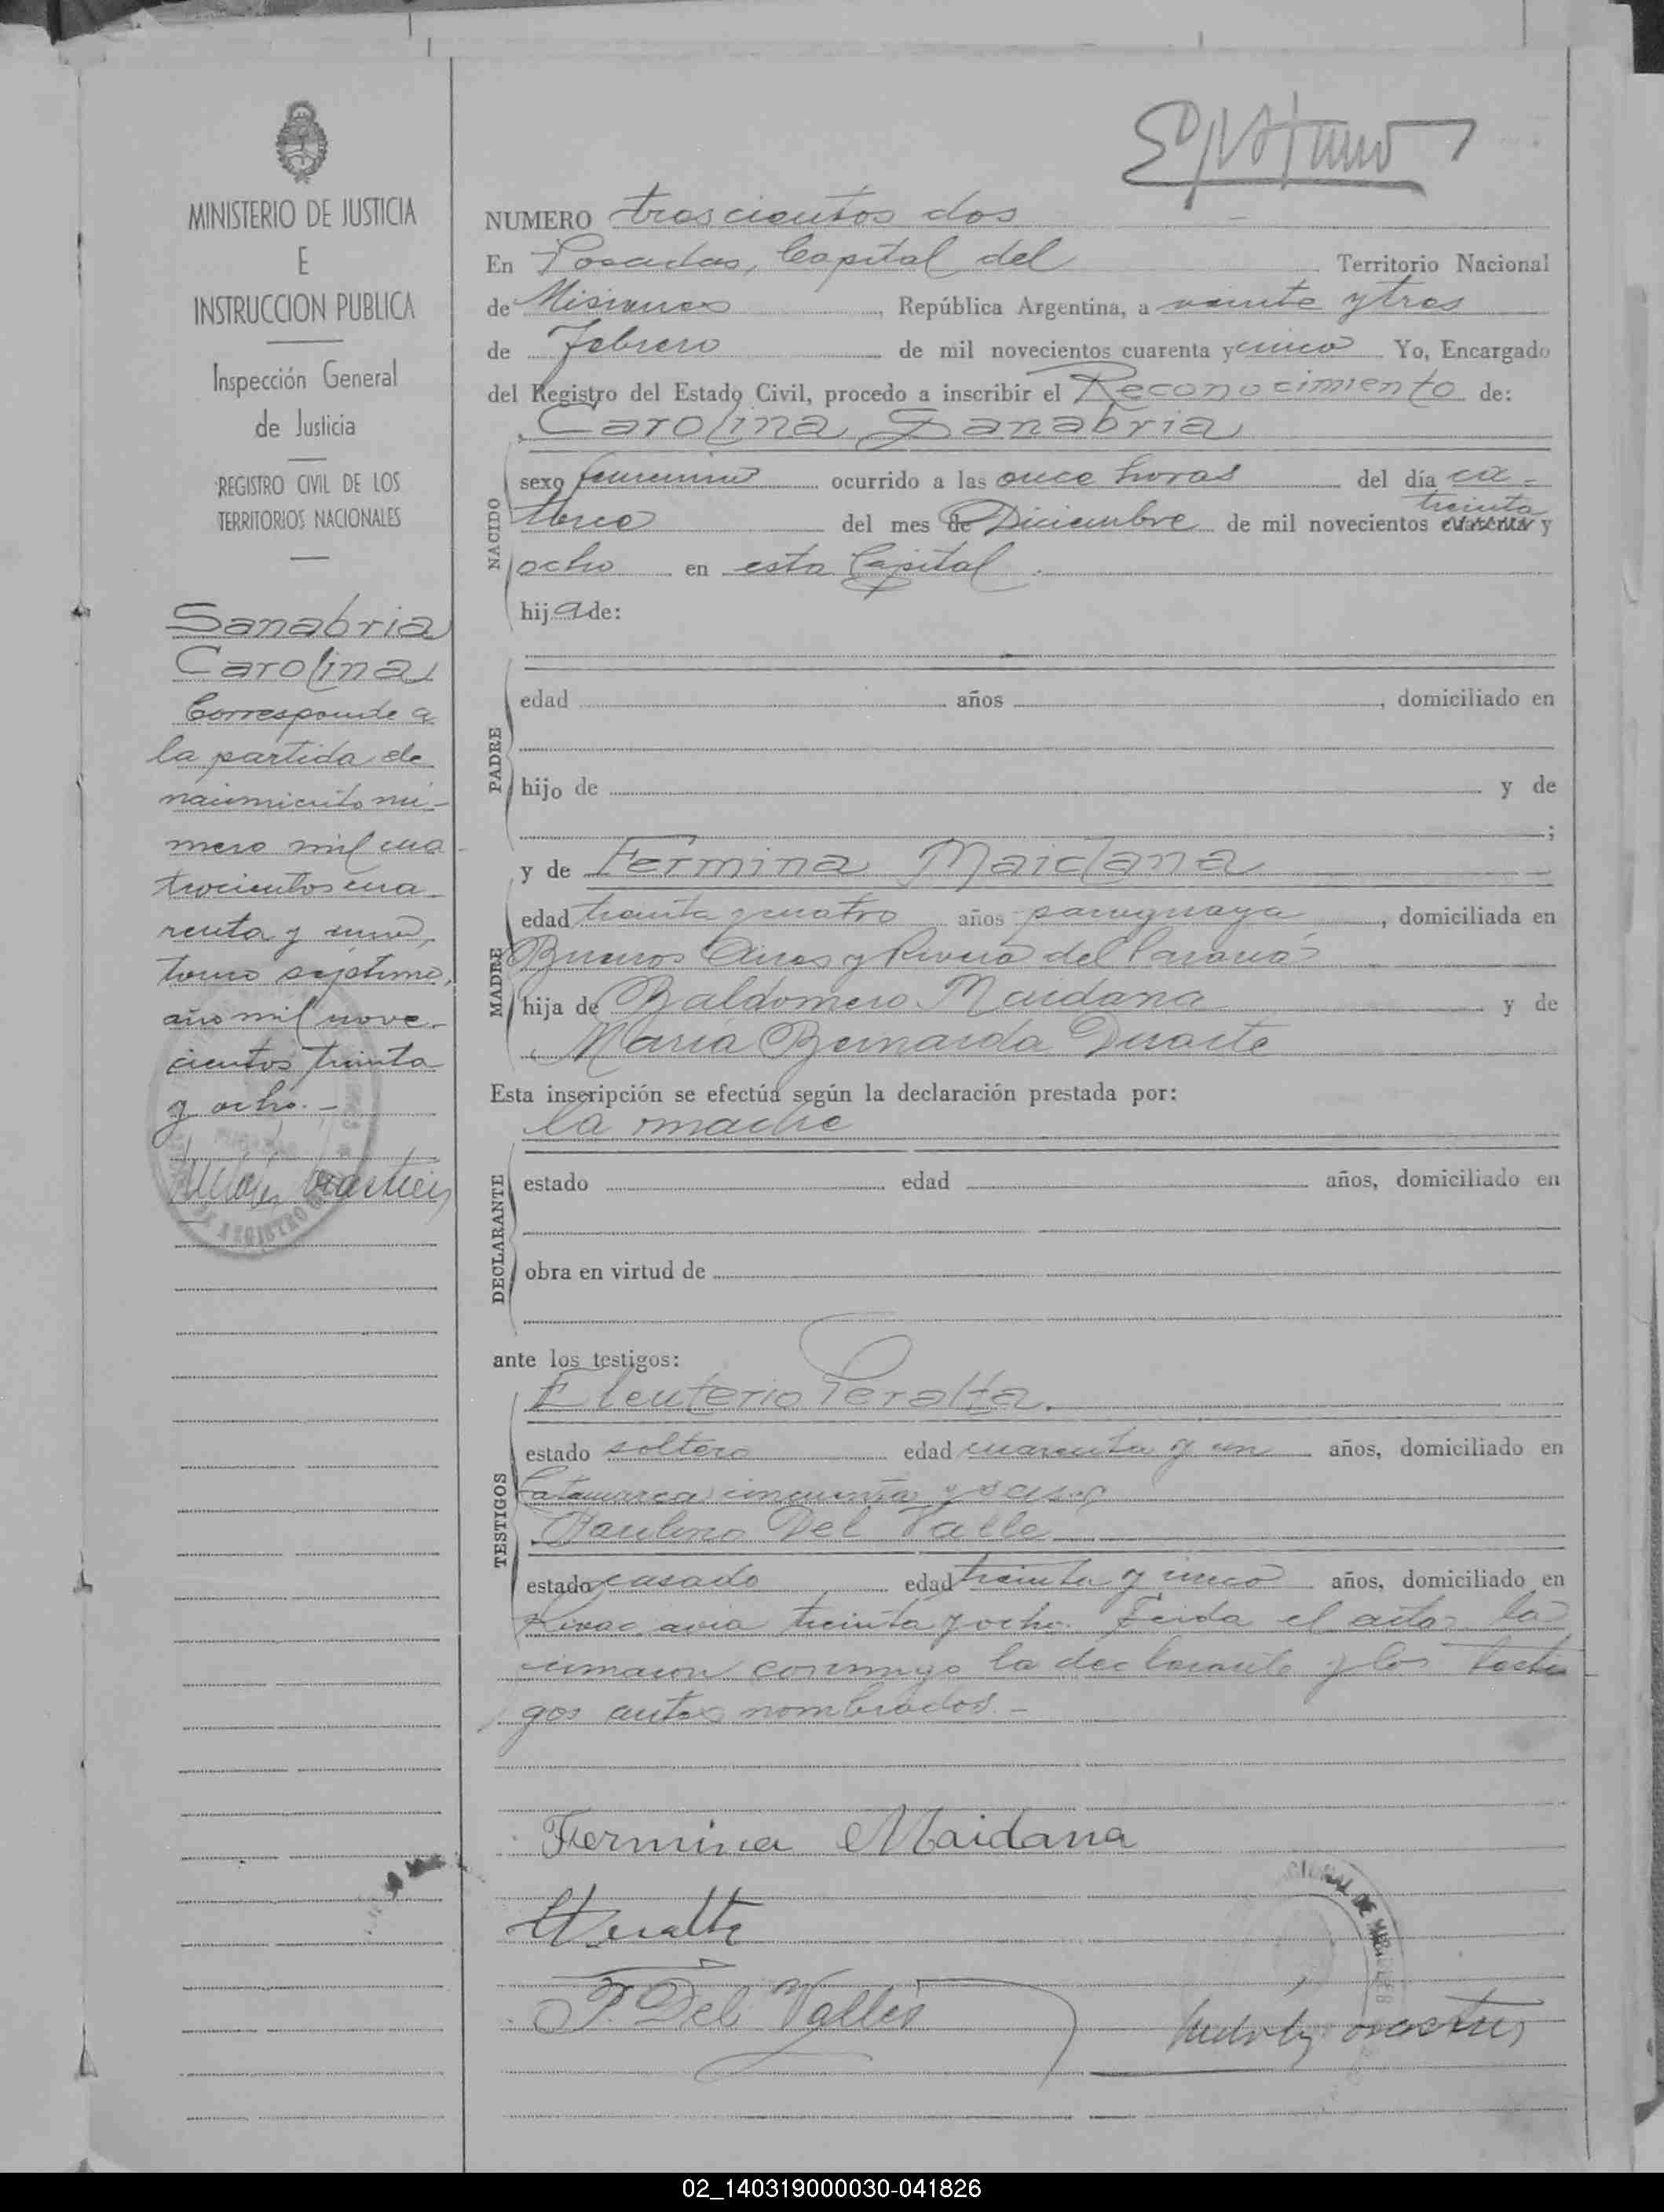 MINISTERIO DE JUSTICIA
E
INSTRUCCION PUBLICA
Inspección General
de Justicia
REGISTRO CIVIL DE LOS
TERRITORIOS NACIONALES
Sanabria
Carolina
Corresponde a
la partida de
nacimiento nú-
mero mil cua
trocientos cua
renta y cinco,
tomo séptimo,
año mil nove-
cientos treinta
y ocho.-
NUMERO trescientos dos
En Posadas, Capital del Territorio Nacional
de Misiones, República Argentina, a veinte y tres
de Febrero de mil novecientos cuarenta y cinco Yo, Encargado
del Registro del Estado Civil, procedo a inscribir el Reconocimiento de:
Carolina Sanabria
NACIDO
sexo femenino ocurrido a las once horas del día ca-
treinta
torce del mes de Diciembre de mil novecientos cuarenta y
ocho en esta Capital.
hija de:
PADRE
edad años, domiciliado en
hijo de y de
;
y de Fermina Maidana
MADRE
edad treinta y cuatro años paraguaya, domiciliada en
Buenos Aires y Rivera del Paraná
hija de Baldomero Maidana y de
María Bernarda Duarte
Esta inscripción se efectúa según la declaración prestada por:
la madre
DECLARANTE
estado edad años, domiciliado en
obra en virtud de
ante los testigos:
Eleuterio Peralta.
TESTIGOS
estado soltero edad cuarenta y un años, domiciliado en
Catamarca cincuenta y seis.
Paulino Del Valle
estado casado edad treinta y cinco años, domiciliado en
Rivadavia treinta y ocho. Leida el acta la
firmaron conmigo la declarante y los testi
gos antes nombrados.-
Fermina Maidana
EPeralta
P. Del Valle
02_140319000030-041826